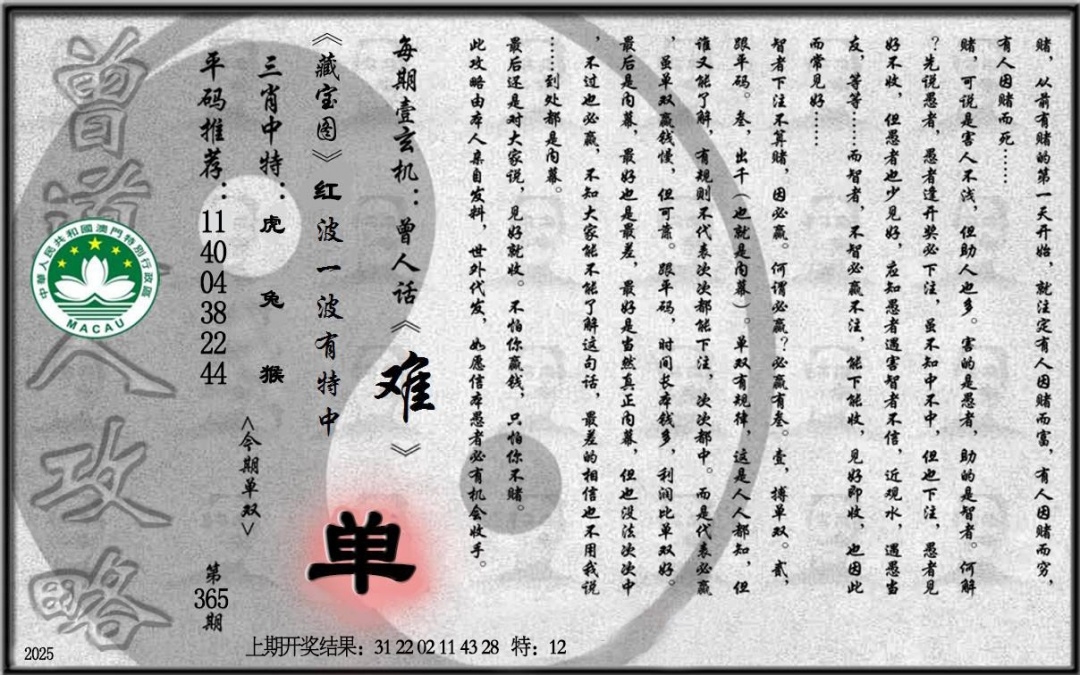 赌，从前有赌的第一天开始，就注定有人因赌而富，有人因赌而穷，
有人因赌而死……
赌，可说是害人不浅，但助人也多。害的是愚者，助的是智者。何解
？先说愚者，愚者逢开奖必下注，虽不知中不中，但也下注，愚者见
好不收，但愚者也少见好，应知愚者遇害智者不信，近观水，遇愚当
友，等等……而智者，不智必赢不注，能下能收，见好即收，也因此
而常见好……
智者下注不算赌，因必赢。何谓必赢？必赢有叁。壹，搏单双。贰，
跟单码。叁，出千（也就是内幕）。单双有规律，这是人人都知，但
谁又能了解，有规则不代表次次都能下注，次次都中。而是代表必赢
，虽单双赢钱慢，但可靠。跟单码，时间长本钱多，利润比单双好。
最后是内幕，最好也是最差，最好是当然真正内幕，但也没法次次中
，不过也必赢，不知大家能不能了解这句话，最差的相信也不用我说
……到处都是内幕。
最后还是对大家说，见好就收。不怕你赢钱，只怕你不赌。
此攻略由本人亲自发料，世外代发，如愿信本愚者必有机会收手。
每期壹玄机：曾人话《难》
《藏宝图》红波一波有特中
单
三肖中特：虎 兔 猴
<今期单双>
平码推荐：11 40 04 38 22 44
第365期
曾道人攻略
中華人民共和國澳門特別行政區
MACAU
2025
上期开奖结果：31 22 02 11 43 28 特：12